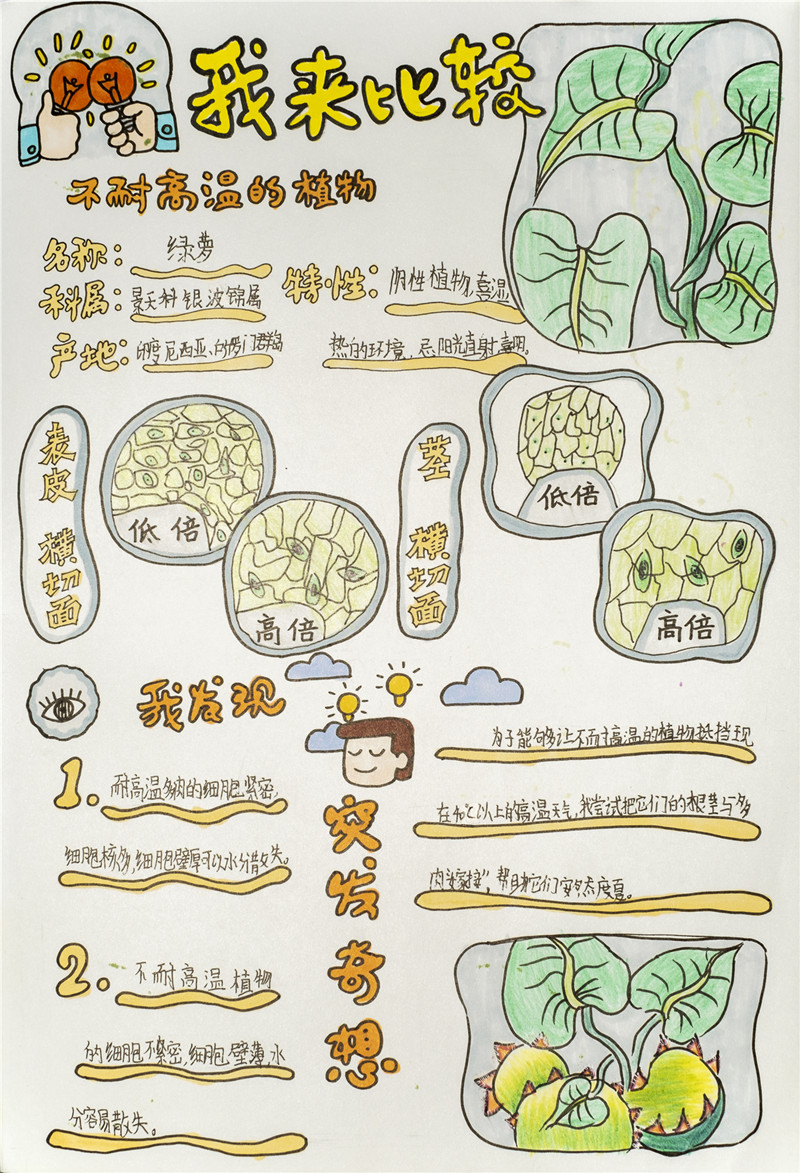 我来比较
不耐高温的植物
名称：绿萝
科属：景天科银波锦属
产地：印度尼西亚、所罗门群岛
特性：阴性植物，喜湿
热的环境，忌阳光直射，喜阴。
表皮 横切面
低倍
高倍
茎 横切面
低倍
高倍
我发现
1. 耐高温多肉的细胞紧密，
细胞核多，细胞壁厚可以水分散失。
2. 不耐高温植物
的细胞不紧密，细胞壁薄，水
分容易散失。
突发奇想
为了能够让不耐高温的植物抵挡现
在40℃以上的高温天气，我尝试把它们的根茎与多
肉“嫁接”，帮助它们安然度夏。